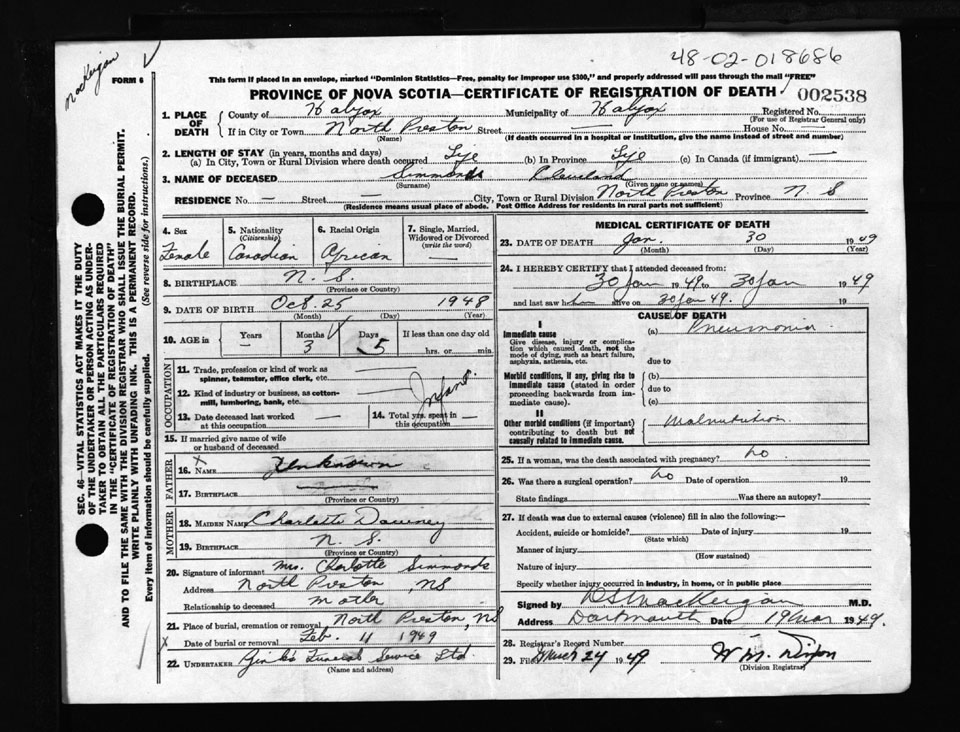 48-02-018686
MacKeigan
FORM 6
This form if placed in an envelope, marked "Dominion Statistics—Free, penalty for improper use $300," and properly addressed will pass through the mail "FREE"
PROVINCE OF NOVA SCOTIA—CERTIFICATE OF REGISTRATION OF DEATH
002538
1. PLACE OF DEATH
County of Halifax Municipality of Halifax Registered No.
(For use of Registrar General only)
If in City or Town North Preston Street — House No.
(Name) (If death occurred in a hospital or institution, give the name instead of street and number)
2. LENGTH OF STAY (in years, months and days)
(a) In City, Town or Rural Division where death occurred Life (b) In Province Life (c) In Canada (if immigrant) —
3. NAME OF DECEASED Simmonds Cleveland
(Surname) (Given name or names)
RESIDENCE No. — Street — City, Town or Rural Division North Preston Province N. S
(Residence means usual place of abode. Post Office Address for residents in rural parts not sufficient)
4. Sex Female
5. Nationality (Citizenship) Canadian
6. Racial Origin African
7. Single, Married, Widowed or Divorced (write the word) —
8. BIRTHPLACE N. S.
(Province or Country)
9. DATE OF BIRTH Oct. 25 1948
(Month) (Day) (Year)
10. AGE in Years — Months 3 Days 5 If less than one day old
hrs. or min.
OCCUPATION
11. Trade, profession or kind of work as spinner, teamster, office clerk, etc. —
12. Kind of industry or business, as cotton-mill, lumbering, bank, etc. —
Infant.
13. Date deceased last worked at this occupation —
14. Total yrs. spent in this occupation —
15. If married give name of wife or husband of deceased
FATHER
16. Name Unknown
17. Birthplace —
(Province or Country)
MOTHER
18. Maiden Name Charlotte Downey
19. Birthplace N. S.
(Province or Country)
20. Signature of informant Mrs. Charlotte Simmonds
Address North Preston, NS
Relationship to deceased mother
21. Place of burial, cremation or removal North Preston, NS
Date of burial or removal Feb. 11 1949
22. UNDERTAKER Zink's Funeral Service Ltd
(Name and address)
MEDICAL CERTIFICATE OF DEATH
23. DATE OF DEATH Jan. 30 1949
(Month) (Day) (Year)
24. I HEREBY CERTIFY that I attended deceased from:
30 Jan 1949 to 30 Jan 1949
and last saw h alive on 30 Jan 49. 19
CAUSE OF DEATH
I
Immediate cause
(a) Pneumonia
Give disease, injury or complication which caused death, not the mode of dying, such as heart failure, asphyxia, asthenia, etc.
due to
Morbid conditions, if any, giving rise to immediate cause (stated in order proceeding backwards from immediate cause).
(b)
due to
(c)
II
Other morbid conditions (if important) contributing to death but not causally related to immediate cause.
Malnutrition.
25. If a woman, was the death associated with pregnancy? no
26. Was there a surgical operation? no Date of operation 19
State findings Was there an autopsy?
27. If death was due to external causes (violence) fill in also the following:—
Accident, suicide or homicide? Date of injury 19
(State which)
Manner of injury
(How sustained)
Nature of injury
Specify whether injury occurred in industry, in home, or in public place
Signed by D S MacKeigan M.D.
Address Dartmouth Date 19 Mar 1949.
28. Registrar's Record Number
29. Filed March 24 1949 W. M. Dixon
(Division Registrar)
SEC. 46—VITAL STATISTICS ACT MAKES IT THE DUTY
OF THE UNDERTAKER OR PERSON ACTING AS UNDERTAKER TO OBTAIN ALL THE PARTICULARS REQUIRED
IN THE "CERTIFICATE OF REGISTRATION OF DEATH"
AND TO FILE THE SAME WITH THE DIVISION REGISTRAR WHO SHALL ISSUE THE BURIAL PERMIT.
WRITE PLAINLY WITH UNFADING INK. THIS IS A PERMANENT RECORD.
Every item of information should be carefully supplied. (See reverse side for instructions.)